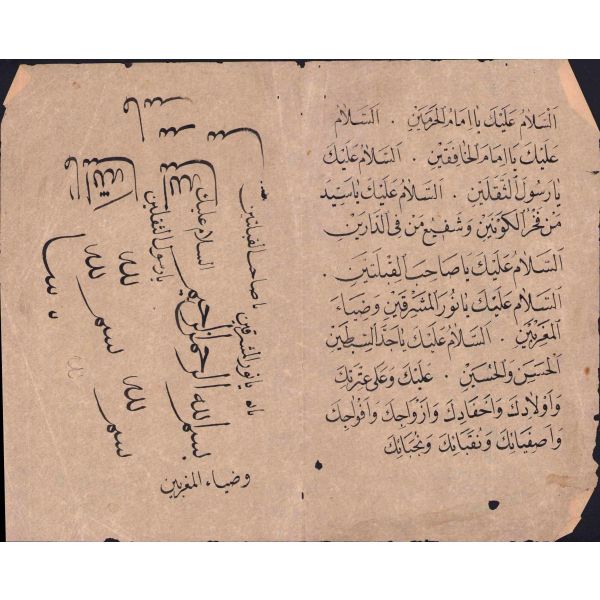 اَلسَّلَامُ عَلَيْكَ يَا اِمَامَ الْحَرَمَيْنِ . اَلسَّلَامُ
عَلَيْكَ يَا اِمَامَ الْخَافِقَيْنِ . اَلسَّلَامُ عَلَيْكَ
يَا رَسُولَ الثَّقَلَيْنِ . اَلسَّلَامُ عَلَيْكَ يَا سَيِّدَ
مَنْ فِى الْكَوْنَيْنِ وَشَفِيعَ مَنْ فِى الدَّارَيْنِ
اَلسَّلَامُ عَلَيْكَ يَا صَاحِبَ الْقِبْلَتَيْنِ .
اَلسَّلَامُ عَلَيْكَ يَا نُورَ الْمَشْرِقَيْنِ وَضِيَاءَ
الْمَغْرِبَيْنِ . اَلسَّلَامُ عَلَيْكَ يَا جَدَّ السِّبْطَيْنِ
الْحَسَنِ وَالْحُسَيْنِ . عَلَيْكَ وَعَلَى عِتْرَتِكَ
وَاَوْلَادِكَ وَاَحْفَادِكَ وَاَزْوَاجِكَ وَاَفْوَاجِكَ
وَاَصْفِيَائِكَ وَنُقَبَائِكَ وَنُجَبَائِكَ
يا صاحب القبلتين
يا نور المشرقين
السلام عليك
يا رسول الثقلين
بسم الله الرحمن الرحيم
لله
سم لله
لله
سم
وضياء المغربين